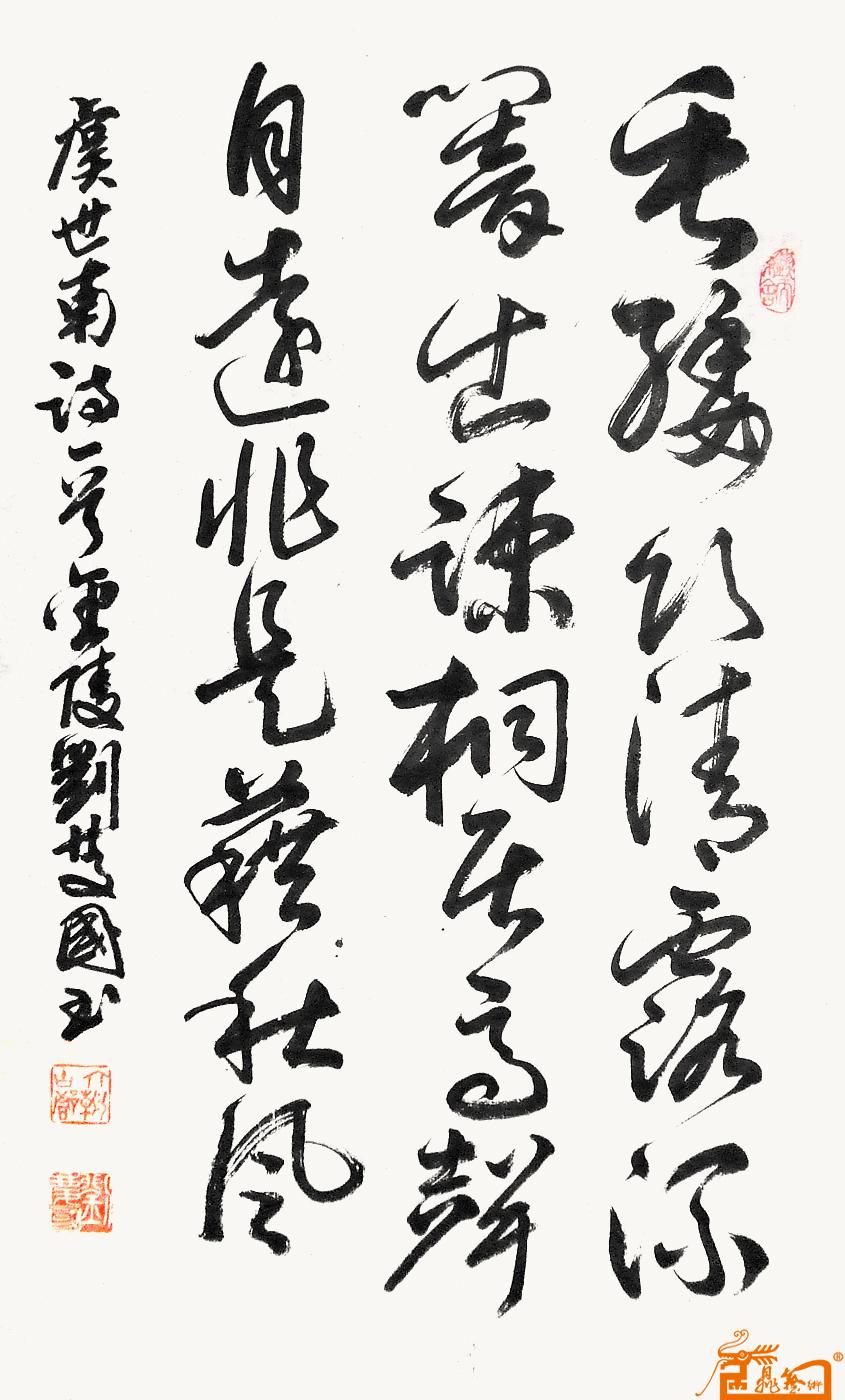 垂緌飲清露流
響出疎桐居高聲
自遠非是藉秋風
虞世南詩一首金陵劉國